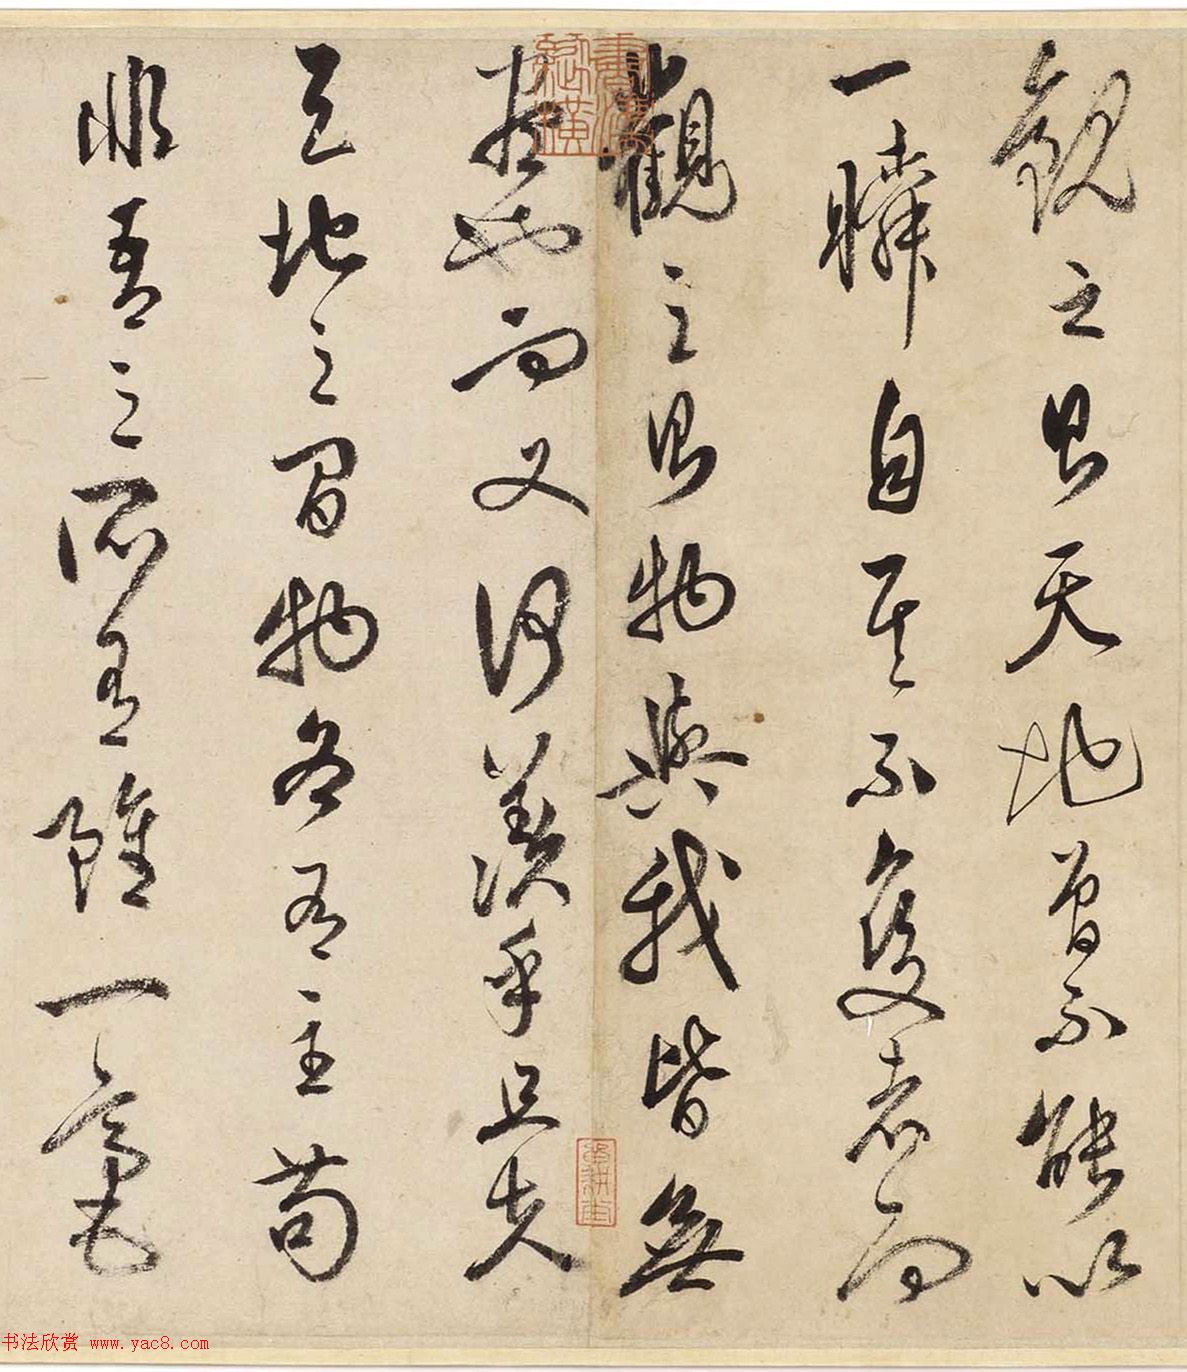 觀之則天地曾不能以
一瞬自其不變者而
觀之則物與我皆無
盡也而又何羨乎且夫
天地之間物各有主苟
非吾之所有雖一毫
书法欣赏 www.yac8.com